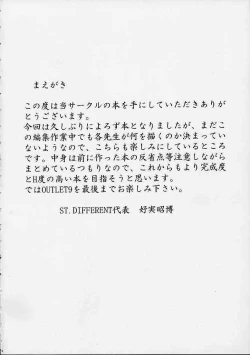 まえがき
この度は当サークルの本を手にしていただきありが
とうございます。
今回は久しぶりによろず本となりましたが、まだこ
の編集作業中でも各先生が何を描くのか決まってい
ないようなので、こちらも楽しみにしているところ
です。中身は前に作った本の反省点等注意しながら
まとめているつもりなので、これからもより完成度
とH度の高い本を目指そうと思います。
ではOUTLET9を最後までお楽しみ下さい。
ST.DIFFERENT代表　好実昭博